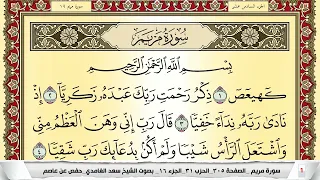 الجزء السادس عشر
سورة مريم ١٩
سُورَةُ مَرْيَمَ
بِسْمِ اللَّهِ الرَّحْمَٰنِ الرَّحِيمِ
كٓهيعٓصٓ ١ ذِكْرُ رَحْمَتِ رَبِّكَ عَبْدَهُۥ زَكَرِيَّآ ٢ إِذْ
نَادَىٰ رَبَّهُۥ نِدَآءً خَفِيًّا ٣ قَالَ رَبِّ إِنِّى وَهَنَ ٱلْعَظْمُ مِنِّى
وَٱشْتَعَلَ ٱلرَّأْسُ شَيْبًا وَلَمْ أَكُنۢ بِدُعَآئِكَ رَبِّ شَقِيًّا ٤
سورة مريم . الصفحة ٣٠٥ الحزب ٣١ الجزء ١٦ . بصوت الشيخ سعد الغامدي . حفص عن عاصم